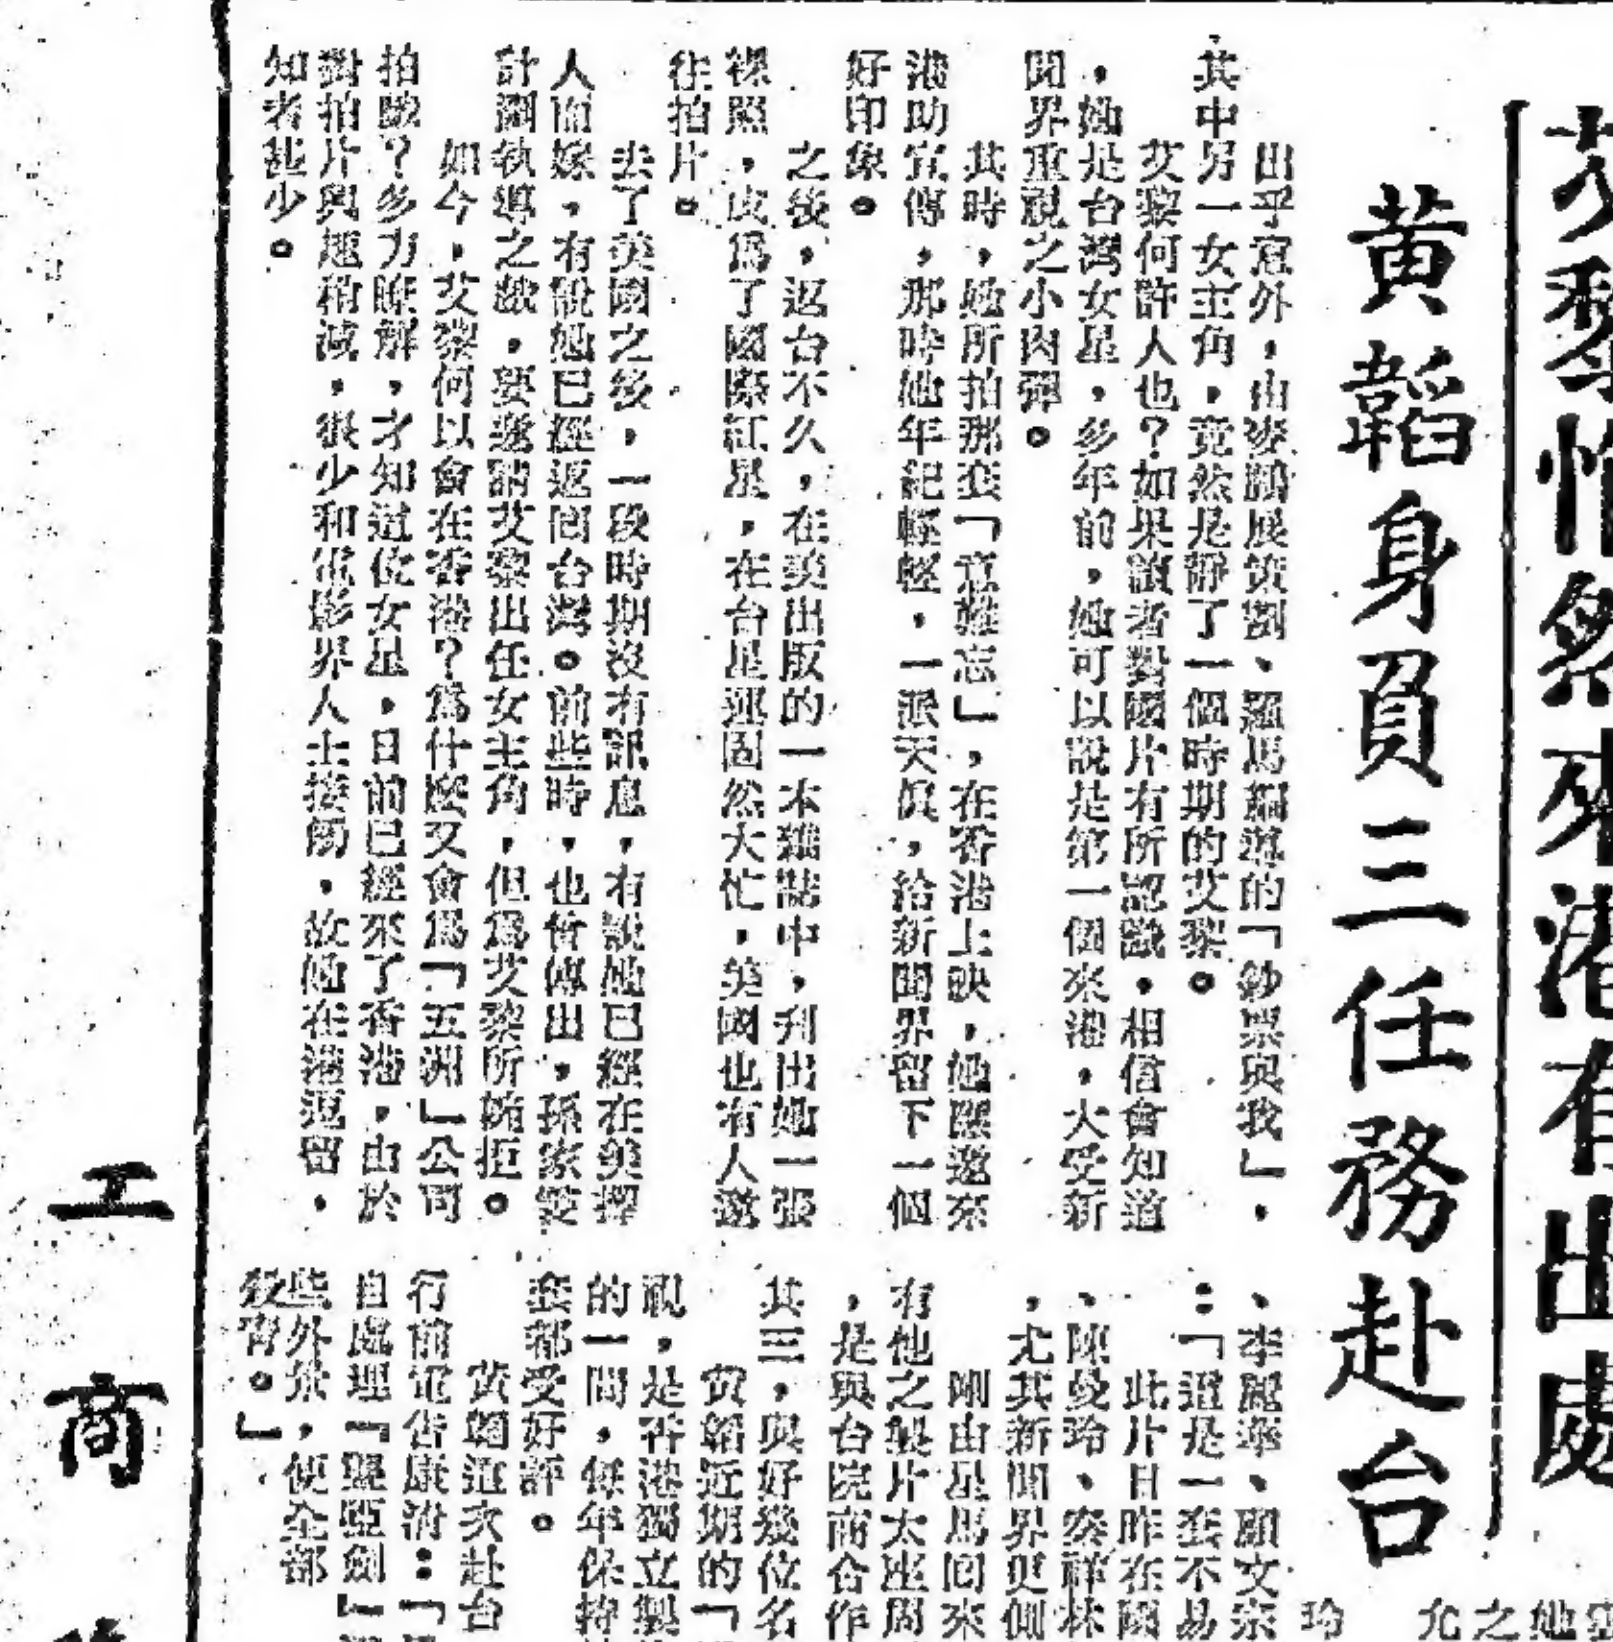 艾黎悄然來港有出處
黃韜身負三任務赴台
出乎意外,由麥鵬展策劃、羅馬編導的「鈔票與我」,
其中另一女主角,竟然是靜了一個時期的艾黎。
艾黎何許人也?如果讀者對國片有所認識,相信會知道
,她是台灣女星,多年前,她可以說是第一個來港,大受新
聞界重視之小肉彈。
其時,她所拍那套「意難忘」,在香港上映,她應邀來
港助宣傳,那時她年紀輕輕,一派天眞,給新聞界留下一個
好印象。
之後,返台不久,在美出版的一本雜誌中,刋出她一張
裸照,成爲了國際紅星,在台星運固然大忙,英國也有人邀
往拍片。
去了英國之後,一段時期沒有訊息,有說她已經在美擇
人而嫁,有說她已經返回台灣。前些時,也曾傳出,孫家雯
計劃執導之戲,要邀請艾黎出任女主角,但爲艾黎所婉拒。
如今,艾黎何以會在香港?爲什麽又會爲「五洲」公司
拍戲?多方瞭解,才知道位女星,日前已經來了香港,由於
對拍片興趣稍減,很少和電影界人士接觸,故她在港逗留,
知者甚少。
、李麗華、顧文宗
:「這是一套不易
此片日昨在國
、陳曼玲、麥祥林
,尤其新聞界更側
剛由星馬回來
有他之製片太座周
,是與台院商合作
其三,與好幾位名
黃韜近期的「
視,是香港獨立製
的一間,每年保持
套都受好評。
黃韜這次赴台
行前電告康沛:「
自處理『聖亞劍』
些外景,便全部
殺青。」
玲
允之她
工商